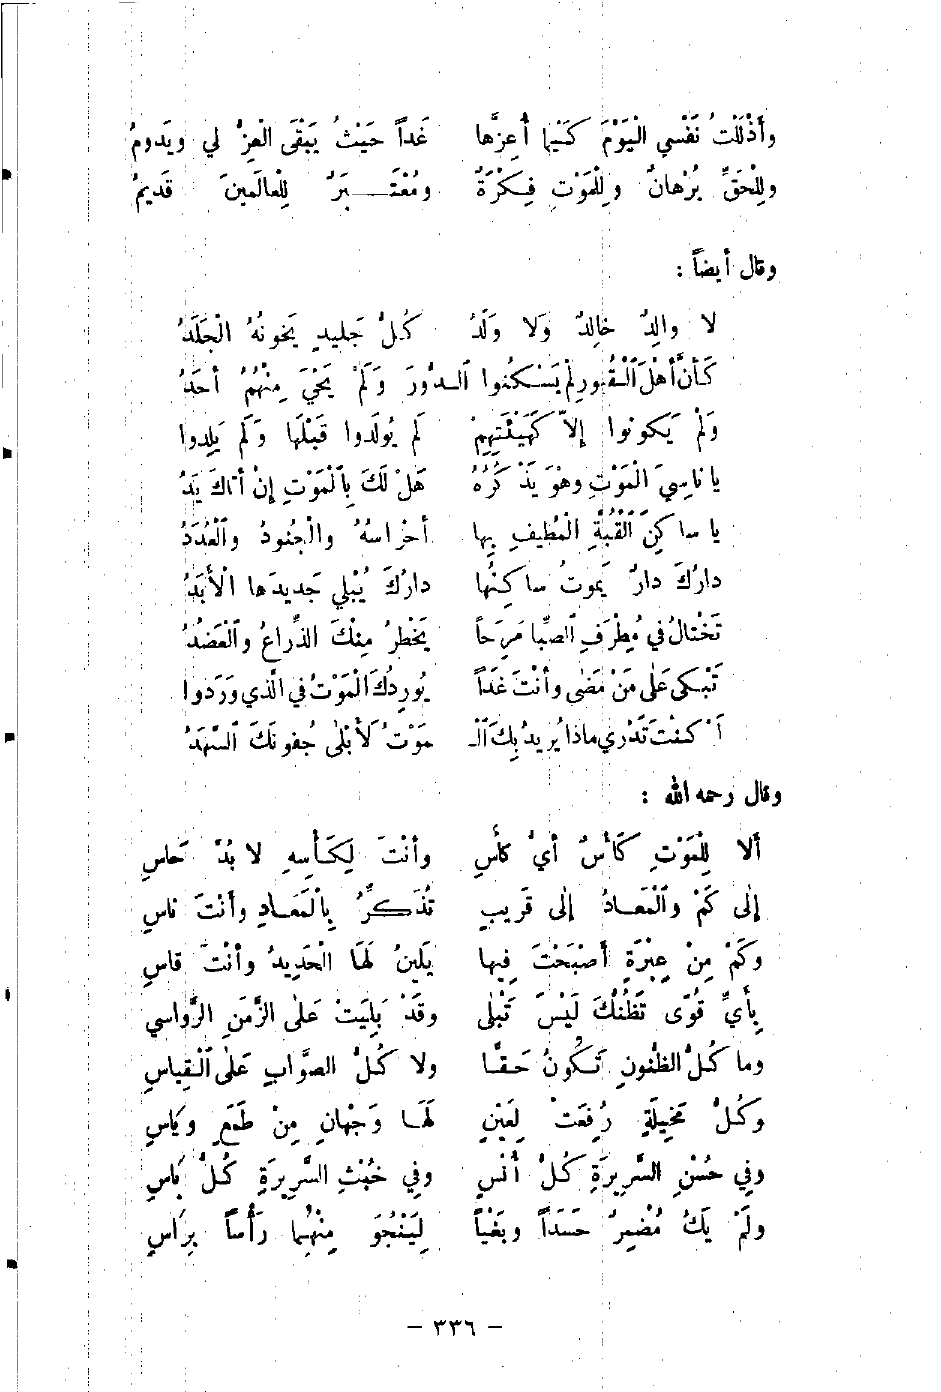 وأَذْلَلْتُ نَفْسي الْيَوْمَ كَيْما أُعِزَّها غَداً حَيْثُ يَبْقَى الْعِزُّ لي ويَدومُ
ولِلْحَقِّ بُرْهانٌ ولِلْمَوْتِ فِكْرَةٌ ومُعْتَبَرٌ لِلْعالَمينَ قَديمُ
وقال أيضاً :
لا والِدٌ خالِدٌ وَلا وَلَدُ كُلُّ جَليدٍ يَخونُهُ الْجَلَدُ
كَأنَّ أهْلَ ٱلْقُبورِ لمْ يَسْكُنوا ٱلدُّورَ وَلَمْ يَحْيَ مِنْهُمُ أحَدُ
وَلمْ يَكونوا إلاّ كَهَيْئَتِهِمْ لَم يُولَدوا قَبْلَها وَلَم يَلِدوا
يا ناسِيَ الْمَوْتِ وهْوَ يَذْكُرُهُ هَلْ لَكَ بِٱلْمَوْتِ إنْ أتاكَ يَدُ
يا ساكِنَ ٱلْقُبَّةِ الْمُطيفِ بِها أحْراسُهُ والْجُنودُ وٱلْعُدَدُ
دارُكَ دارٌ يَموتُ ساكِنُها دارُكَ يُبْلي جَديدَها الْأَبَدُ
تَخْتالُ في مُطرَفِ ٱلصِّبا مَرَحاً يَخْطرُ مِنْكَ الذِّراعُ وٱلْعَضُدُ
تَبْكى عَلى مَنْ مَضى وأنْتَ غَداً يُورِدُكَ الْمَوْتُ في الَّذي وَرَدوا
لَوْ كنْتَ تَدْري ماذا يُريدُ بِكَ ٱلْـ مَوْتُ لَأبْلى جُفونَكَ السَّهَدُ
وقال رحمه الله :
ألا لِلْمَوْتِ كَأسٌ أيُّ كأسِ وأنْتَ لِكَأسِهِ لا بُدَّ حَاسِ
إلى كَمْ وٱلْمَعادُ إلى قَريبٍ تُذَكِّرُ بِالْمَعادِ وأنْتَ ناسِ
وكَمْ مِنْ عِبْرَةٍ أصْبَحْتَ فيها يَلينُ لَهَا الْحَديدُ وأنْتَ قاسِ
بِأيِّ قُوًى تَظُنُّكَ لَيْسَ تَبْلى وقَدْ بَلِيَتْ عَلى الزَّمَنِ الرَّواسي
وما كُلُّ الظُّنونِ تَكُونُ حَقًّا ولا كُلُّ الصَّوابِ عَلى ٱلْقِياسِ
وَكُلُّ مَخيلَةٍ رُفِعَتْ لِعَيْنٍ لَهَا وَجْهانِ مِنْ طَمَعٍ ويَاسِ
وفي حُسْنِ السَّريرَةِ كُلُّ أُنْسٍ وفي خُبْثِ السَّريرَةِ كُلُّ بَاسِ
ولَمْ يَكُ مُضْمِرٌ حَسَداً وبَغْياً لِيَنْجُوَ مِنْهُما رَأساً بِرَاسِ
– ٣٣٦ –